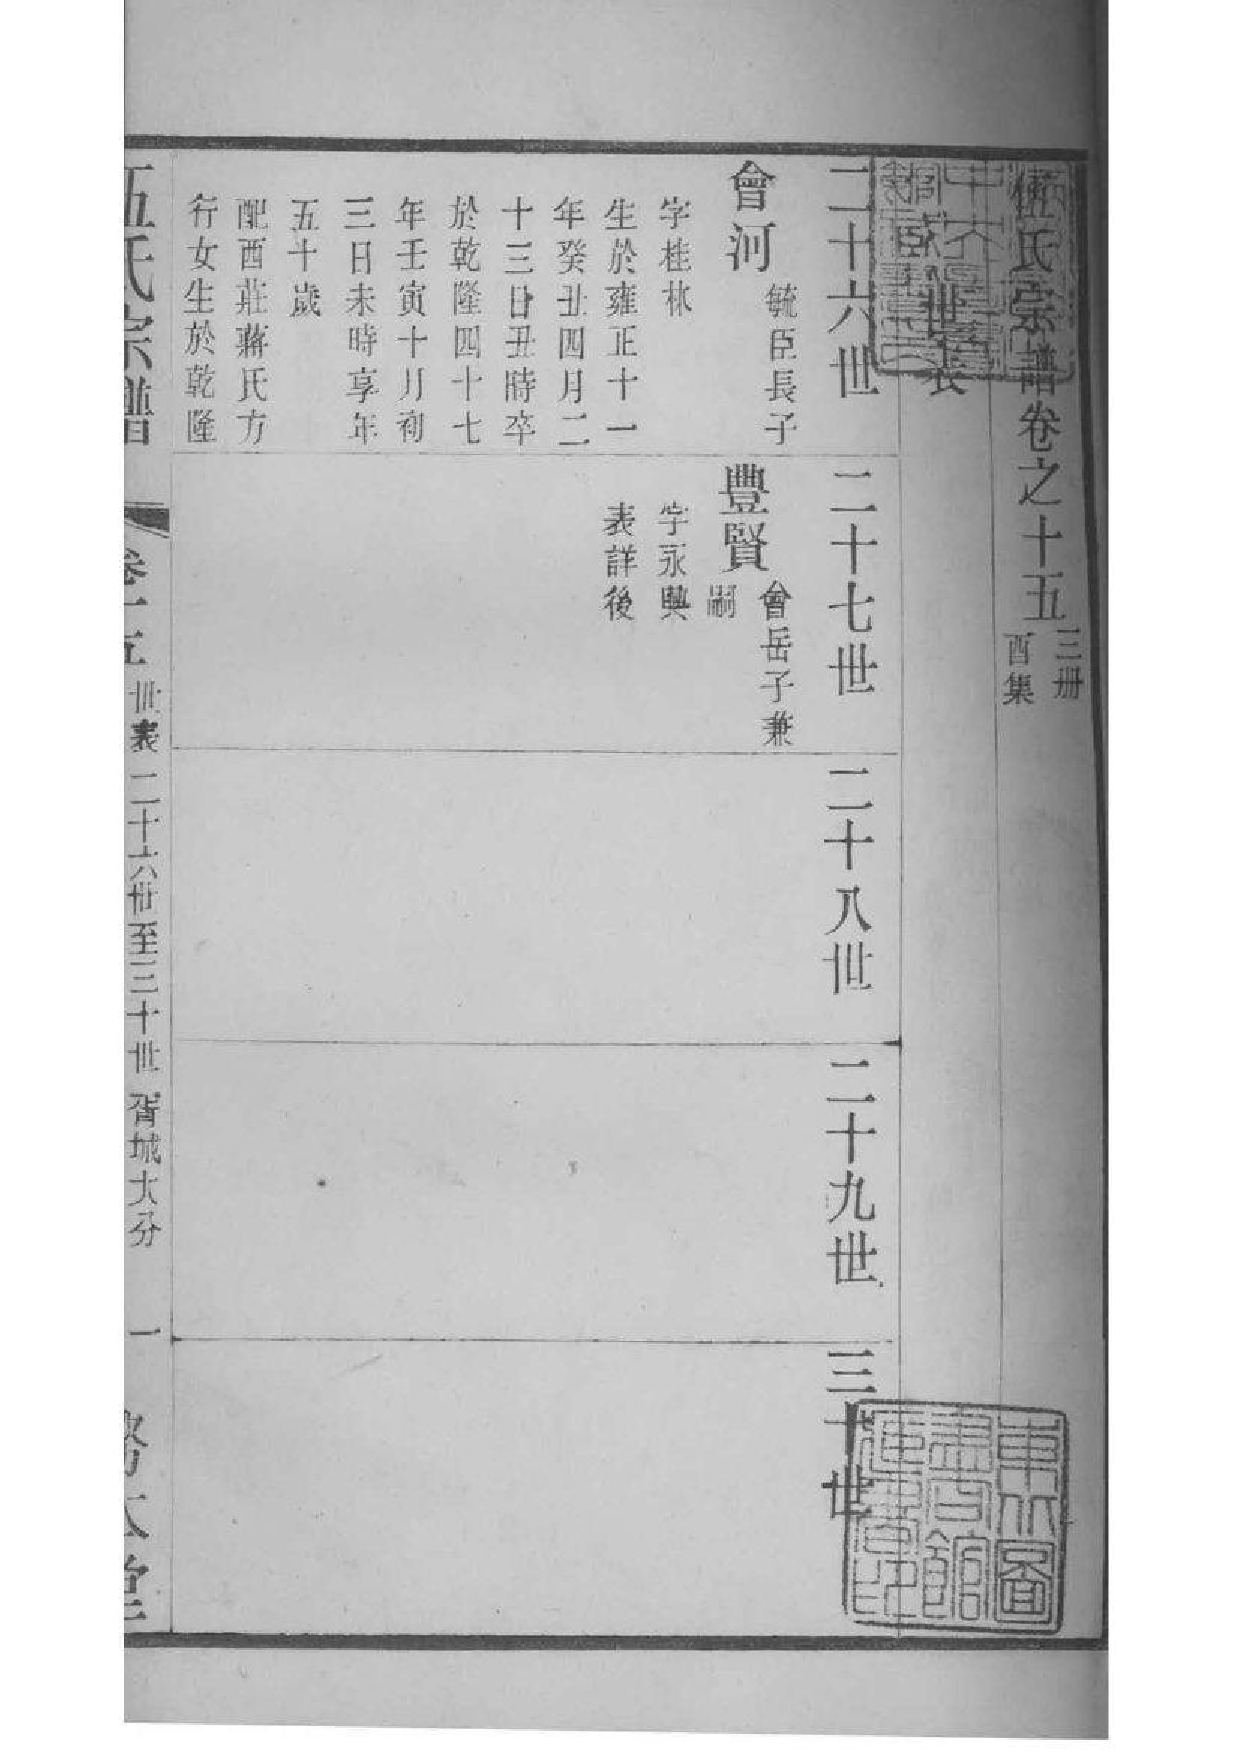 伍氏宗譜卷之十五
三册
酉集
世表
二十六世
會河
毓臣長子
字桂林
生於雍正十一
年癸丑四月二
十三日丑時卒
於乾隆四十七
年壬寅十月初
三日未時享年
五十歲
配西莊蔣氏方
行女生於乾隆
二十七世
豐賢
會岳子兼
嗣
字永興
表詳後
二十八世
二十九世
三十世
伍氏宗譜
卷十五
世表
二十六世至三十世
胥城大分
一
東北圖
書館